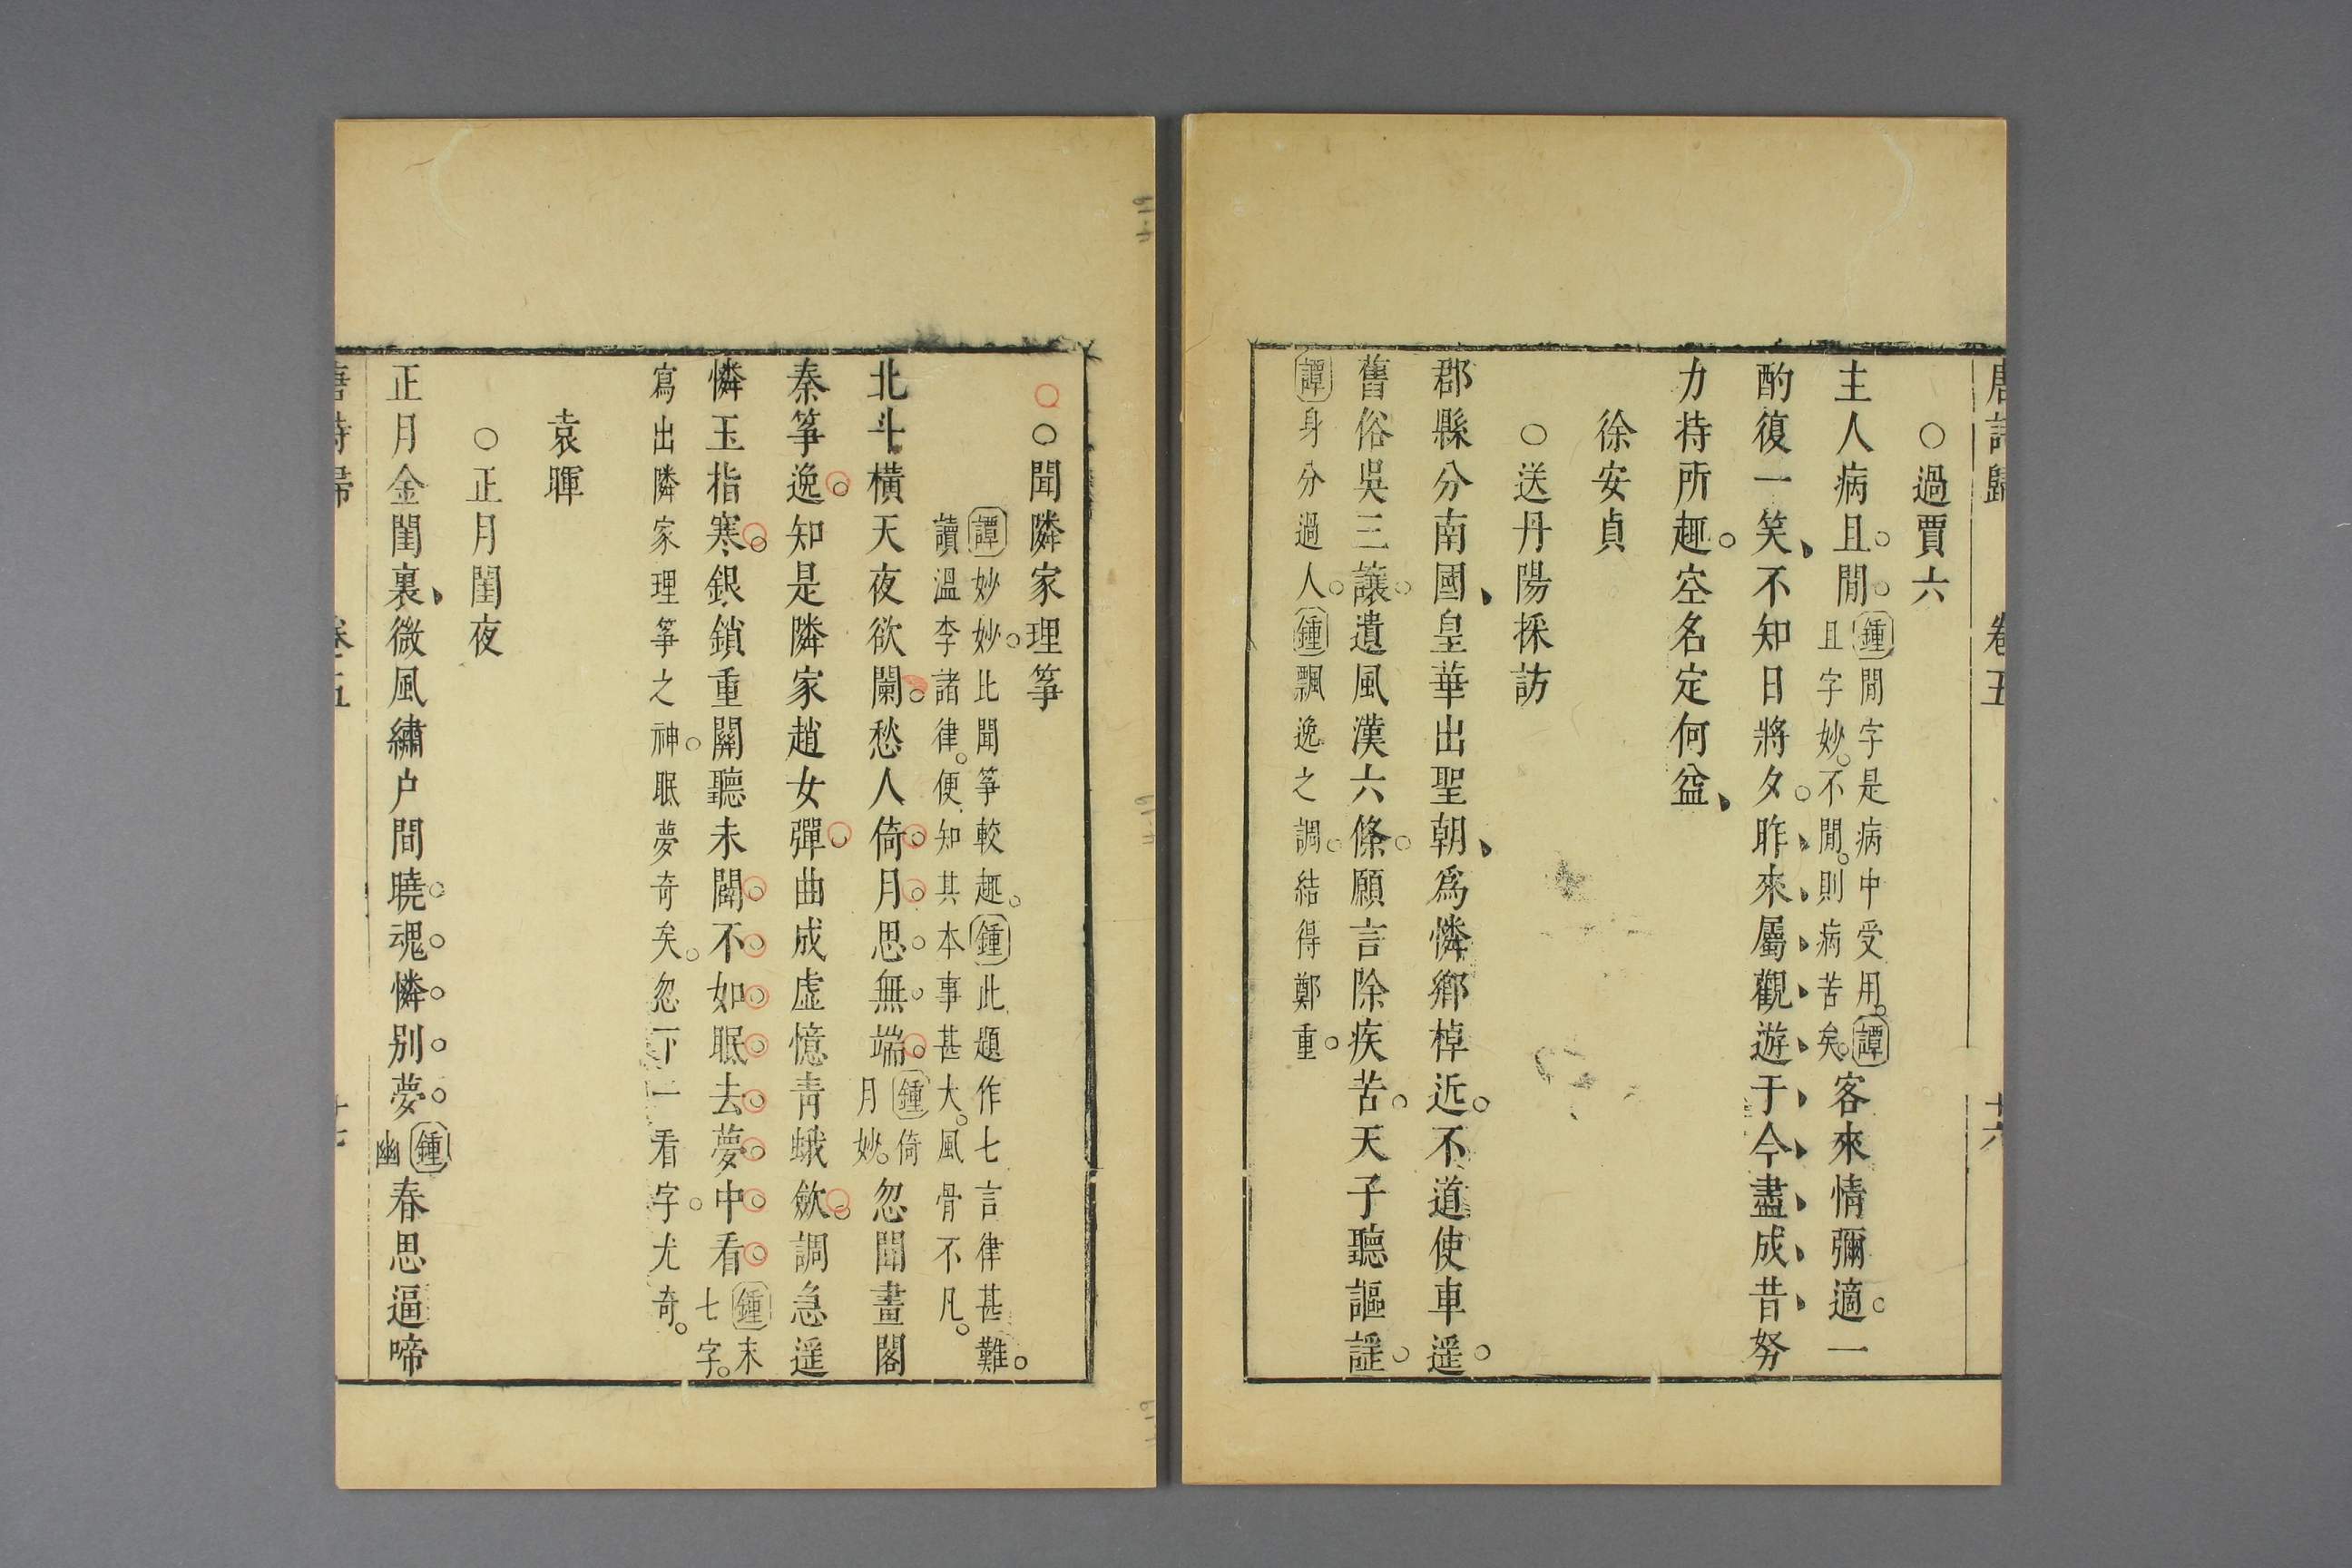 唐詩歸 卷五 十六
○過賈六
主人病且閒
鍾閒字是病中受用。譚
且字妙。不閒。則病苦矣。
客來情彌適一
酌復一笑不知日將夕昨來屬觀遊于今盡成昔努
力持所趣空名定何益
徐安貞
○送丹陽採訪
郡縣分南國皇華出聖朝爲憐鄉棹近不道使車遥
舊俗吳三讓遺風漢六條願言除疾苦天子聽謳謡
譚身分過人。鍾飄逸之調。結得鄭重。
○○聞隣家理箏
譚妙妙。比聞箏較趣。鍾此題作七言律甚難。
讀溫李諸律。便知其本事甚大。風骨不凡。
北斗橫天夜欲闌愁人倚月思無端
鍾倚
月妙。
忽聞畫閣
秦箏逸知是隣家趙女彈曲成虛憶青蛾斂調急遥
憐玉指寒銀鎖重關聽未闢不如眠去夢中看
鍾末
七字。
寫出隣家理箏之神。眠夢奇矣。忽下一看字。尤奇。
袁暉
○正月閨夜
正月金閨裏微風繡户間曉魂憐别夢
鍾
幽
春思逼啼
唐詩歸 卷五